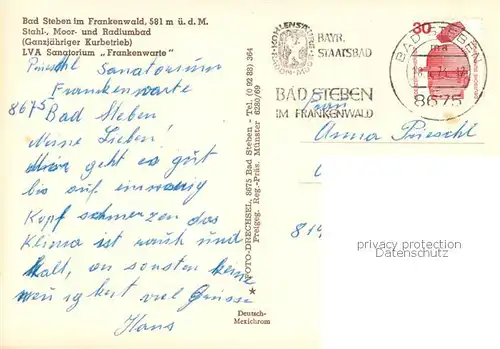 Bad Steben im Frankenwald, 581 m ü. d. M.
Stahl-, Moor- und Radiumbad
(Ganzjähriger Kurbetrieb)
LVA Sanatorium „Frankenwarte"
Prieschl Sanatorium
Frankenwarte
8675 Bad Steben
Meine Lieben!
Mir geht es gut
bis auf
Kopfschmerzen das
Klima ist rauh und
kalt, an sonsten keine
viel Grüsse
Hans
FOTO-DRECHSEL, 8675 Bad Steben - Tel. (0 92 88) 364
Freigeg. Reg.-Präs. Münster 6280/69
Deutsch-
Mexichrom
BAYR.
STAATSBAD
BAD STEBEN
IM FRANKENWALD
BAD STEBEN
ma
8675
30
Anna Prieschl
privacy protection
Datenschutz